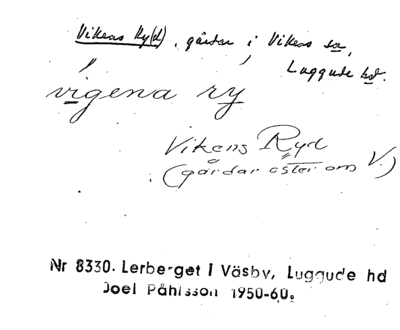 Vikens Ry(d), gårdar i Vikens sn,
Luggude hd.
vigena ry
Vikens Ryd
(gårdar öster om V.)
Nr 8330. Lerberget i Väsby, Luggude hd
Joel Påhlsson 1950-60.